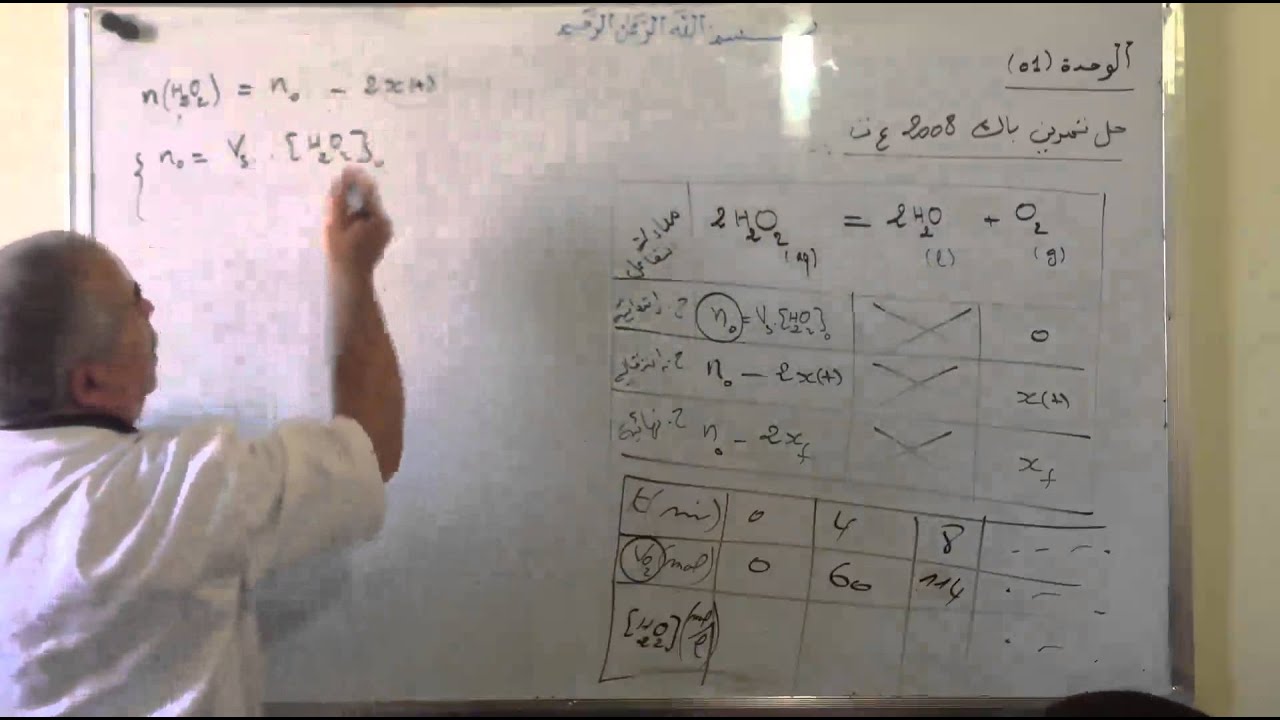 بسم الله الرحمن الرحيم
الوحدة (01)
حل تمرين باك 2008 ع ت
n(H₂O₂) = n₀ - 2x(t)
{ n₀ = Vₛ . [H₂O₂]₀
معادلة التفاعل 2H₂O₂(aq) = 2H₂O(l) + O₂(g)
ح. ابتدائية n₀ = Vₛ.[H₂O₂]₀ 0
ح. انتقالية n₀ - 2x(t) x(t)
ح. نهائية n₀ - 2x_f x_f
t(min) 0 4 8 ....
V_O₂ (mol) 0 60 114
[H₂O₂] (mol/l)